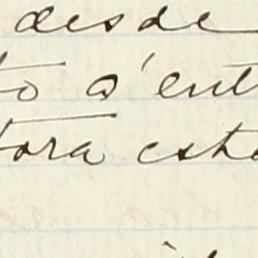 desde
to a' ent
tora este